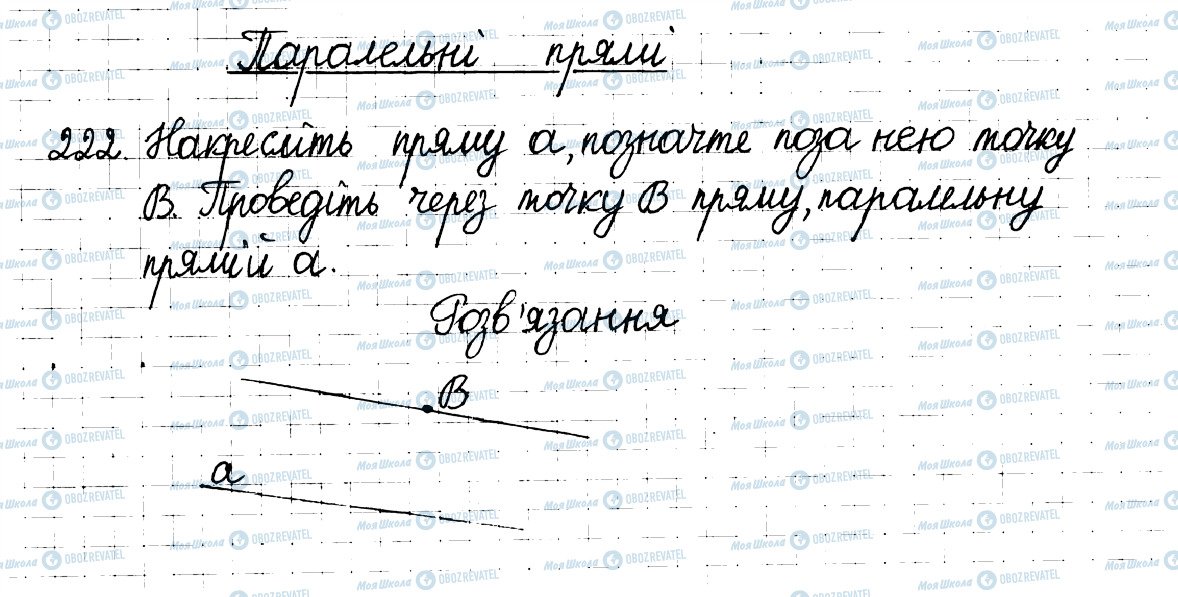 Паралельні прямі
222. Накресліть пряму a, позначте поза нею точку
B. Проведіть через точку B пряму, паралельну
прямій a.
Розв'язання
B
a